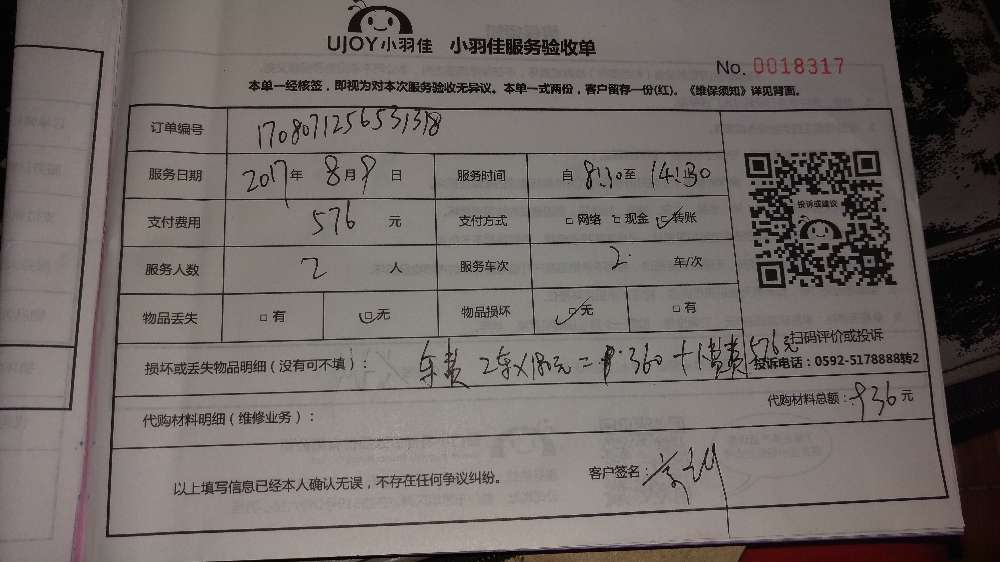 UJOY小羽佳 小羽佳服务验收单
No. 0018317
本单一经核签，即视为对本次服务验收无异议。本单一式两份，客户留存一份(红)。《维保须知》详见背面。
订单编号 1708071256531318
服务日期 2017年 8月 9日 服务时间 自 8:30 至 14:30
投诉或建议
支付费用 576 元 支付方式 □网络 □现金 ☑转账
服务人数 2 人 服务车次 2 车/次
物品丢失 □有 ☑无 物品损坏 ☑无 □有
扫码评价或投诉
损坏或丢失物品明细（没有可不填）： 车费 2车×180元= 360 + 费576元
投诉电话：0592-5178888转2
代购材料明细（维修业务）： 代购材料总额：936 元
以上填写信息已经本人确认无误，不存在任何争议纠纷。 客户签名：